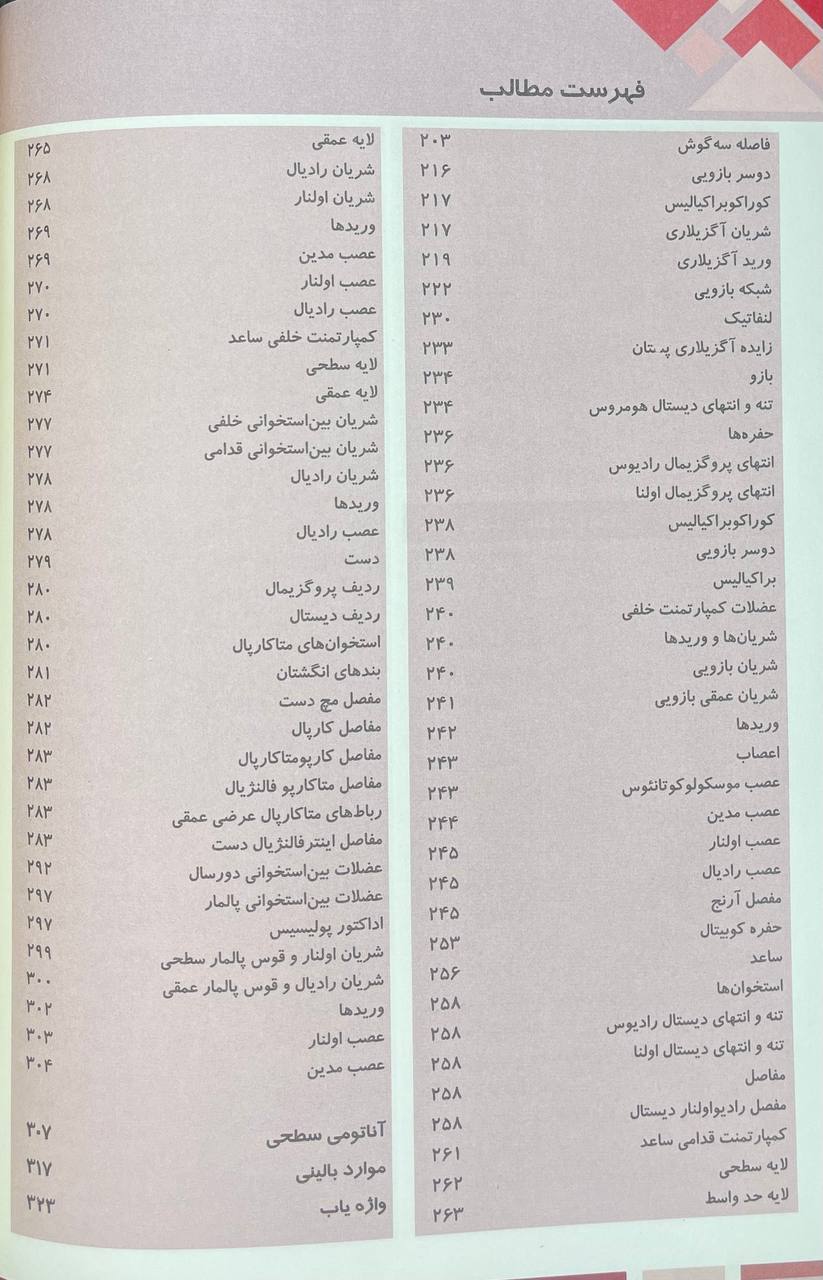 فهرست مطالب
فاصله سه‌گوش ۲۰۳
دوسر بازویی ۲۱۶
کوراکوبراکیالیس ۲۱۷
شریان آگزیلاری ۲۱۷
ورید آگزیلاری ۲۱۹
شبکه بازویی ۲۲۲
لنفاتیک ۲۳۰
زایده آگزیلاری پستان ۲۳۳
بازو ۲۳۴
تنه و انتهای دیستال هومروس ۲۳۴
حفره‌ها ۲۳۶
انتهای پروگزیمال رادیوس ۲۳۶
انتهای پروگزیمال اولنا ۲۳۶
کوراکوبراکیالیس ۲۳۸
دوسر بازویی ۲۳۸
براکیالیس ۲۳۹
عضلات کمپارتمنت خلفی ۲۴۰
شریان‌ها و وریدها ۲۴۰
شریان بازویی ۲۴۰
شریان عمقی بازویی ۲۴۱
وریدها ۲۴۲
اعصاب ۲۴۳
عصب موسکولوکوتانئوس ۲۴۳
عصب مدین ۲۴۴
عصب اولنار ۲۴۵
عصب رادیال ۲۴۵
مفصل آرنج ۲۴۵
حفره کوبیتال ۲۵۳
ساعد ۲۵۶
استخوان‌ها ۲۵۸
تنه و انتهای دیستال رادیوس ۲۵۸
تنه و انتهای دیستال اولنا ۲۵۸
مفاصل ۲۵۸
مفصل رادیواولنار دیستال ۲۵۸
کمپارتمنت قدامی ساعد ۲۶۱
لایه سطحی ۲۶۲
لایه حد واسط ۲۶۳
لایه عمقی ۲۶۵
شریان رادیال ۲۶۸
شریان اولنار ۲۶۸
وریدها ۲۶۹
عصب مدین ۲۶۹
عصب اولنار ۲۷۰
عصب رادیال ۲۷۰
کمپارتمنت خلفی ساعد ۲۷۱
لایه سطحی ۲۷۱
لایه عمقی ۲۷۴
شریان بین‌استخوانی خلفی ۲۷۷
شریان بین‌استخوانی قدامی ۲۷۷
شریان رادیال ۲۷۸
وریدها ۲۷۸
عصب رادیال ۲۷۸
دست ۲۷۹
ردیف پروگزیمال ۲۸۰
ردیف دیستال ۲۸۰
استخوان‌های متاکارپال ۲۸۰
بندهای انگشتان ۲۸۱
مفصل مچ دست ۲۸۲
مفاصل کارپال ۲۸۲
مفاصل کارپومتاکارپال ۲۸۳
مفاصل متاکارپو فالنژیال ۲۸۳
رباط‌های متاکارپال عرضی عمقی ۲۸۳
مفاصل اینترفالنژیال دست ۲۸۳
عضلات بین‌استخوانی دورسال ۲۹۲
عضلات بین‌استخوانی پالمار ۲۹۷
اداکتور پولیسیس ۲۹۷
شریان اولنار و قوس پالمار سطحی ۲۹۹
شریان رادیال و قوس پالمار عمقی ۳۰۰
وریدها ۳۰۲
عصب اولنار ۳۰۳
عصب مدین ۳۰۴
آناتومی سطحی ۳۰۷
موارد بالینی ۳۱۷
واژه یاب ۳۲۳